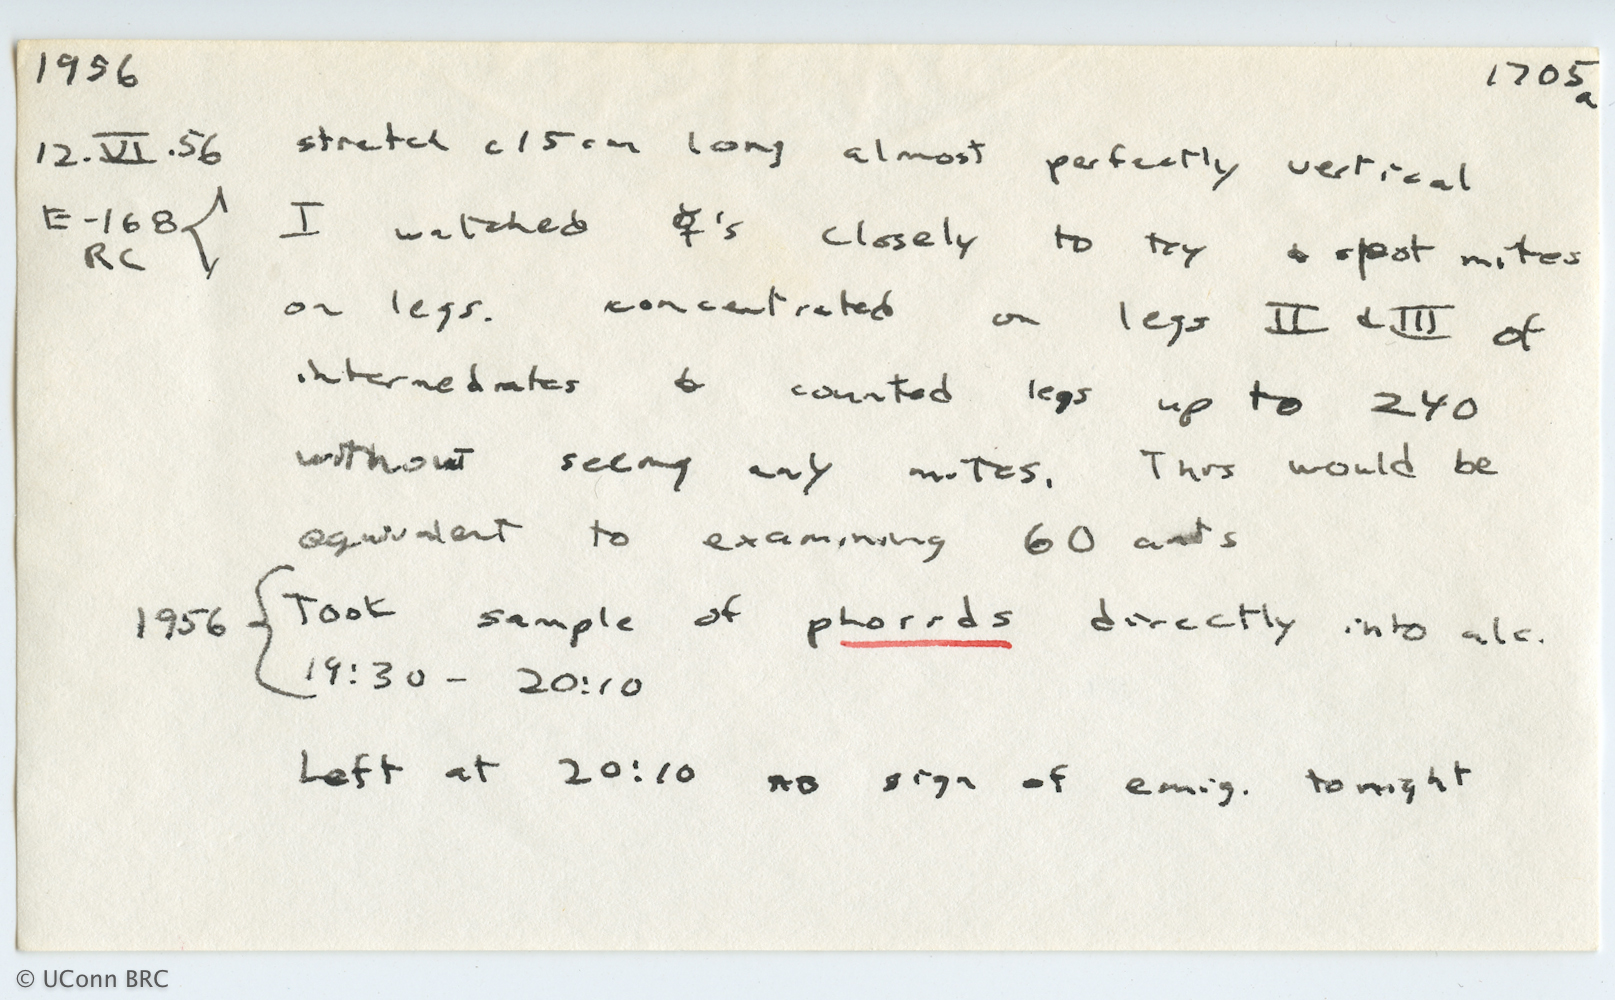 1956 1705a
12.VI.56 stretch c15cm long almost perfectly vertical
E-168 I watched ☿'s closely to try & spot mites
RC
on legs. concentrated on legs II & III of
intermediates & counted legs up to 240
without seeing any mites. This would be
equivalent to examining 60 ants
1956 Took sample of phorids directly into alc.
19:30 - 20:10
Left at 20:10 no sign of emig. tonight
© UConn BRC